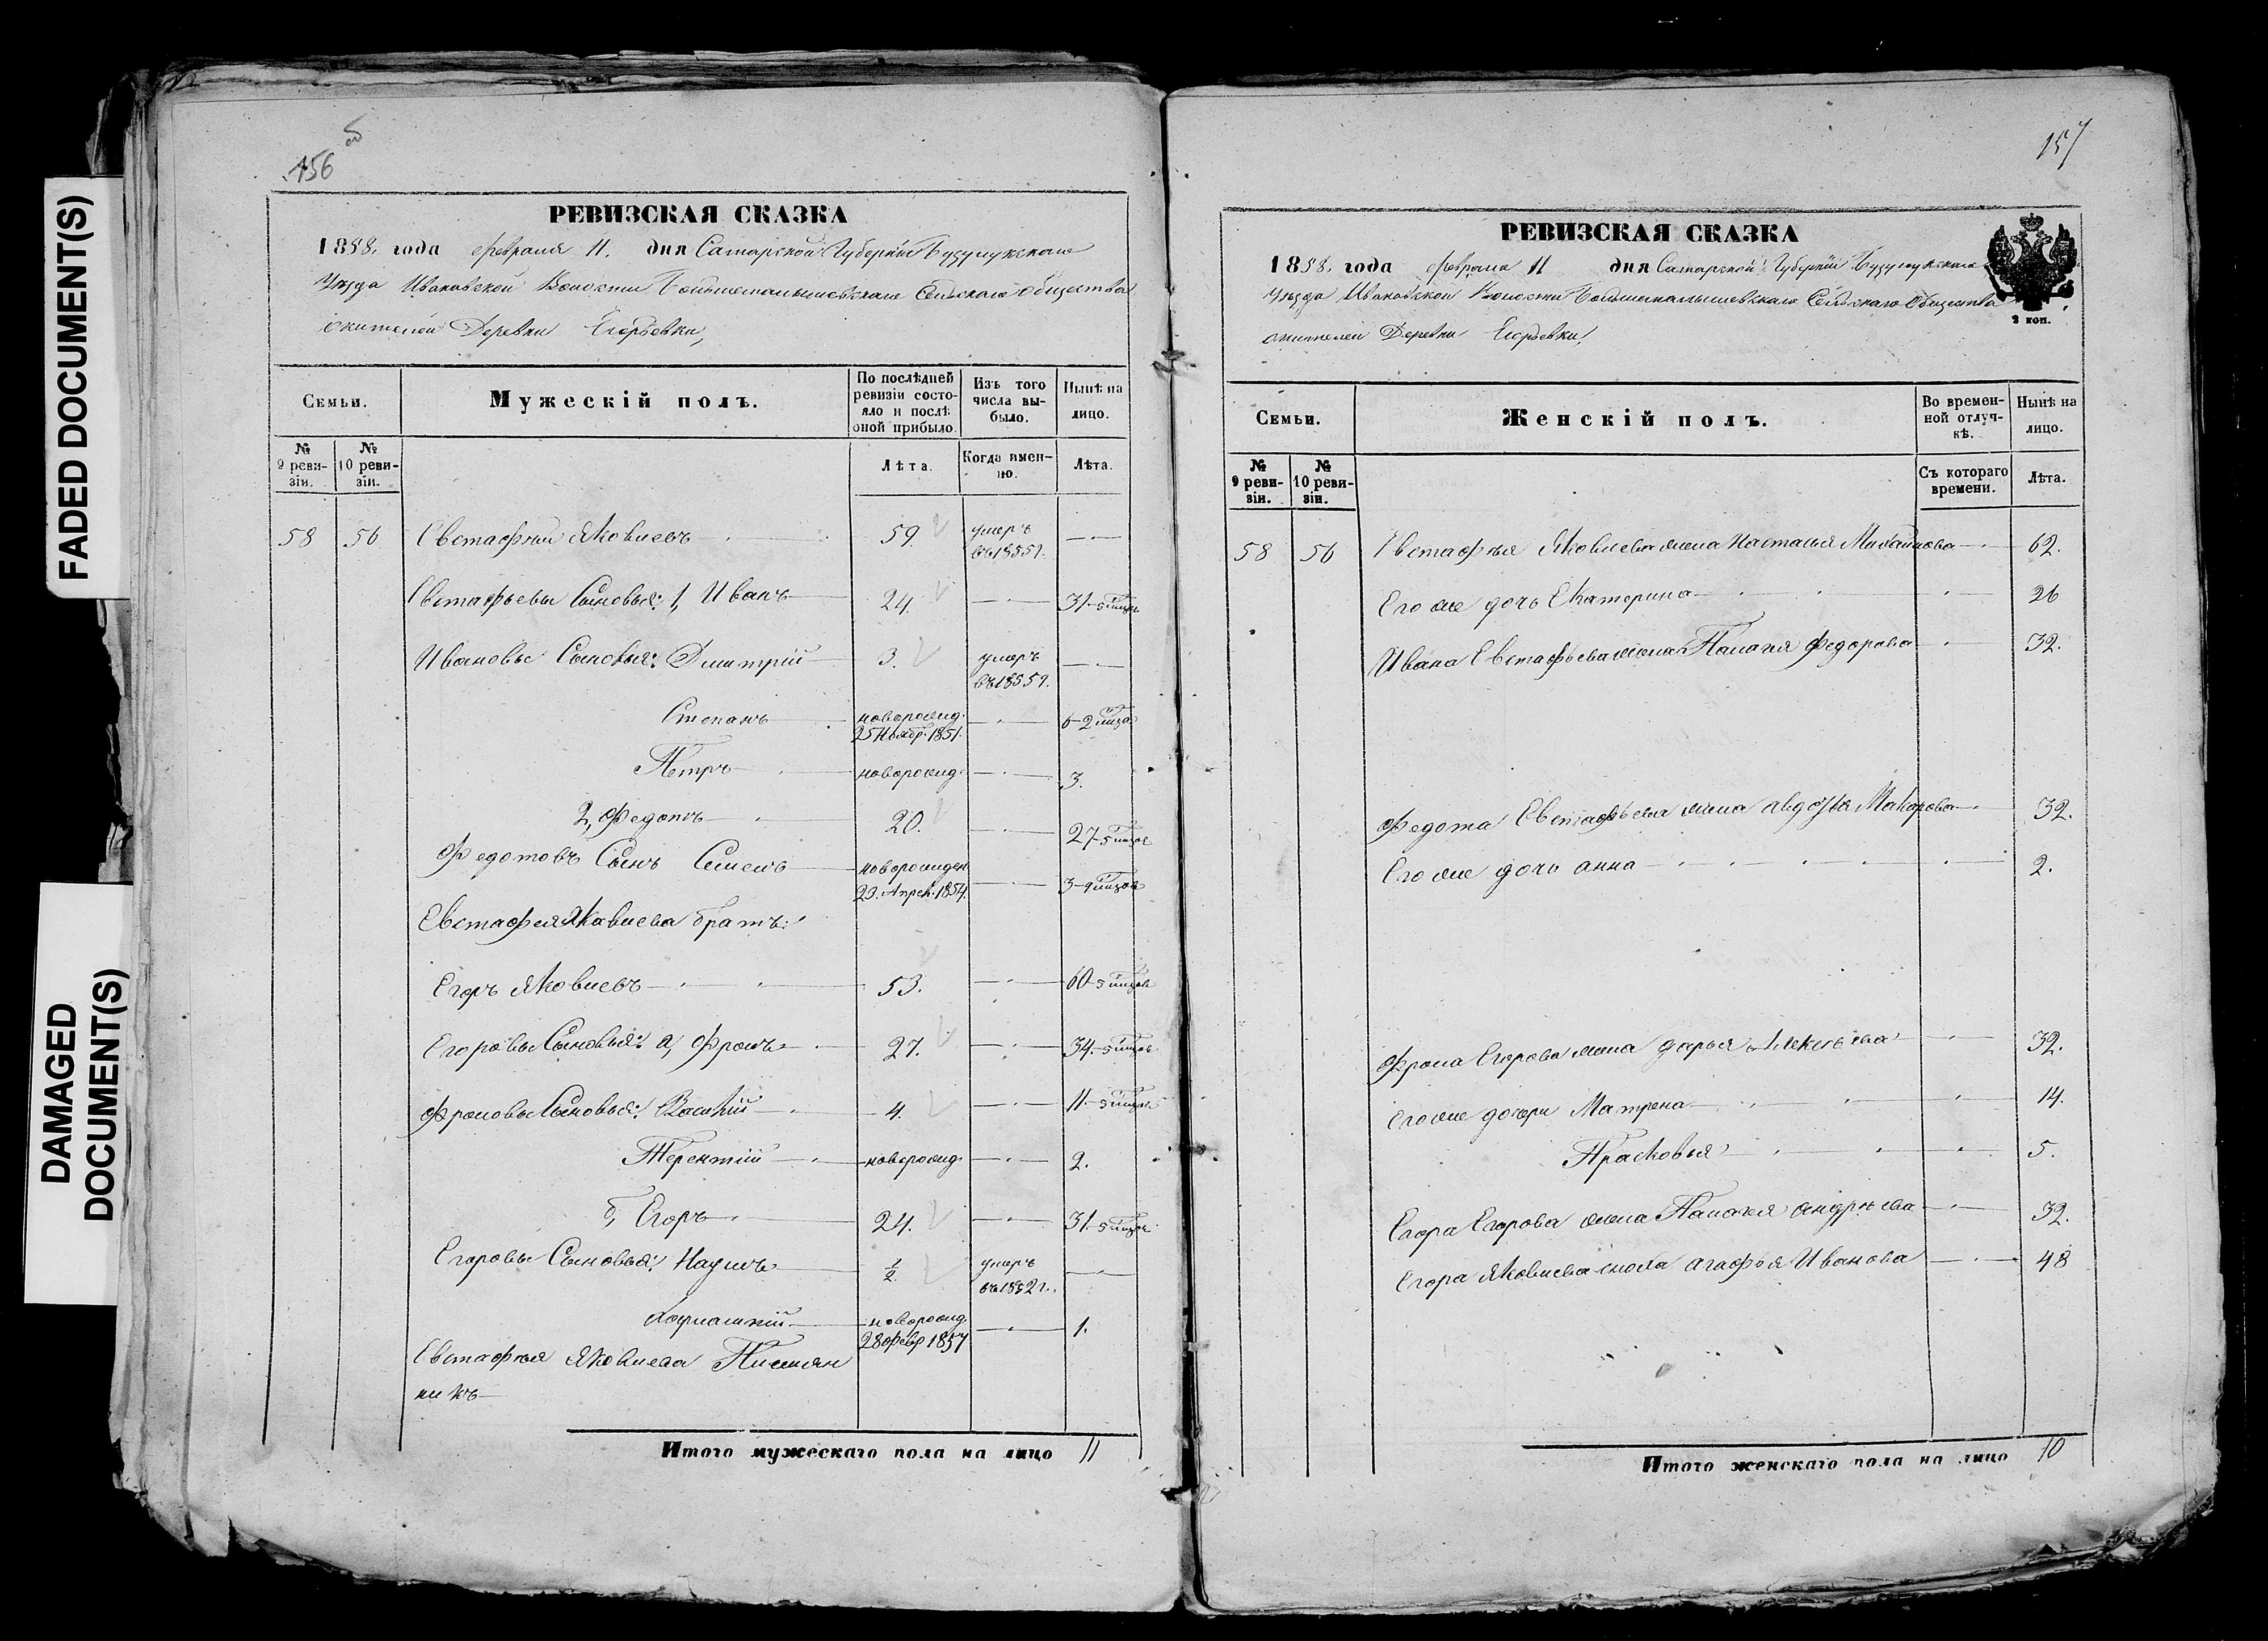 FADED DOCUMENT(S)
DAMAGED
DOCUMENT(S)
156
РЕВИЗСКАЯ СКАЗКА
1858. года февраля 11. дня Самарской Губерніи Бузулукскаго
Уезда Ивановской Волости Большемалышевскаго Сельскаго Общества
жителей Деревни Егорьевки,
Семьи.
Мужескій полъ.
По послѣдней
ревизіи состо-
яло и послѣ
оной прибыло.
Изъ того
числа вы-
было.
Нынѣ на
лицо.
№
9 реви-
зіи.
№
10 реви-
зіи.
Лѣта.
Когда имен-
но.
Лѣта.
58 56 Евстафий Яковлевъ 59. умеръ
въ
Евстафьевы Сыновья: 1, Иванъ 24. 31-5
Ивановы Сыновья: Дмитрій 3. умеръ
въ
Степанъ новорожд. 6-2
25 Ноябр. 1851.
Петръ новорожд. 3.
2, Федотъ 20. 27-5
Федотовъ Сынъ Семенъ новорожден
23. Апрел. 1854. 3-9
Евстафея Яковлева братъ:
Егоръ Яковлевъ 53. 60-5
Егоровы Сыновья: а, Фролъ 27. 34.-5
Фроловы Сыновья: Василій 4. 11.-5
Терентій новорожд. 2.
б, Егоръ 24. 31-5
Егоровы Сыновья: Наумъ 1/2 умеръ
въ 1852 г.
новорожд. 1.
28 Февр 1857
Евстафея Яковлева Племян
никъ
Итого мужескаго пола на лицо 11
157
РЕВИЗСКАЯ СКАЗКА
1858. года февраля 11 дня Самарской Губерніи Бузулукскаго
Уезда Ивановской Волости Большемалышевскаго Сельскаго Общества
жителей Деревни Егорьевки,
2 коп.
Семьи.
Женскій полъ.
Во времен-
ной отлуч-
кѣ.
Нынѣ на
лицо.
№
9 реви-
зіи.
№
10 реви-
зіи.
Съ котораго
времени.
Лѣта.
58 56 Евстафея Яковлева жена Настасья Михайлова 62.
Его же дочь Екатерина 26
Ивана Евстафьева жена Палагея Федорова 32.
Федота Евстафьева жена авдотья Макарова 32.
Его же дочь анна 2.
Фрола Егорова жена дарья Алексѣева 32.
Его же дочери Матрена 14.
Прасковья 5.
Егора Егорова жена Палагея андрѣева 32.
Егора Яковлева агафья Иванова 48
Итого женскаго пола на лицо 10